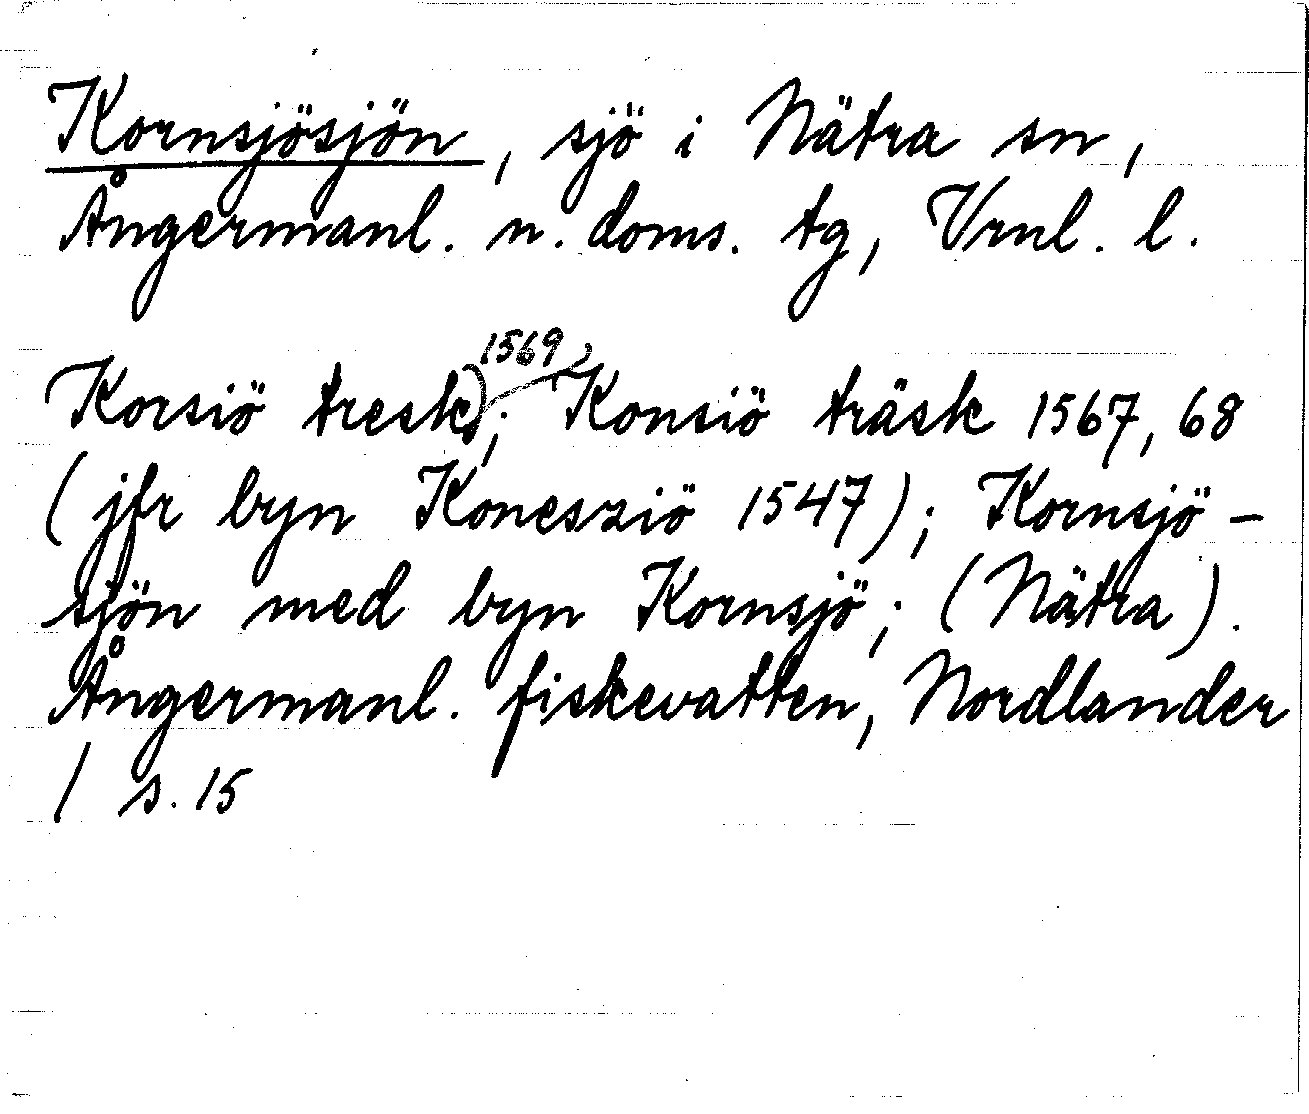 Kornsjösjön, sjö i Nätra sn,
Ångermanl. n. doms. tg, Vrnl. l.
Korsiö tresk 1569; Konsiö träsk 1567, 68
(jfr byn Konesziö 1547); Kornsjö-
sjön med byn Kornsjö; (Nätra).
Ångermanl. fiskevatten, Nordlander
/ s. 15